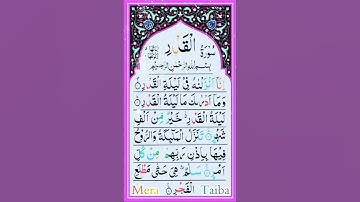 سُوْرَةُ الْقَدْرِ
بِسْمِ اللّٰهِ الرَّحْمٰنِ الرَّحِيْمِ
اِنَّاۤ اَنْزَلْنٰهُ فِیْ لَیْلَةِ الْقَدْرِ
وَمَاۤ اَدْرٰىكَ مَا لَیْلَةُ الْقَدْرِ
لَیْلَةُ الْقَدْرِ خَیْرٌ مِّنْ اَلْفِ
شَهْرٍ تَنَزَّلُ الْمَلٰٓىِٕكَةُ وَالرُّوْحُ
فِیْهَا بِاِذْنِ رَبِّهِمْ مِنْ كُلِّ
اَمْرٍ سَلٰمٌ هِیَ حَتّٰى مَطْلَعِ
Mera الْفَجْرِ Taiba